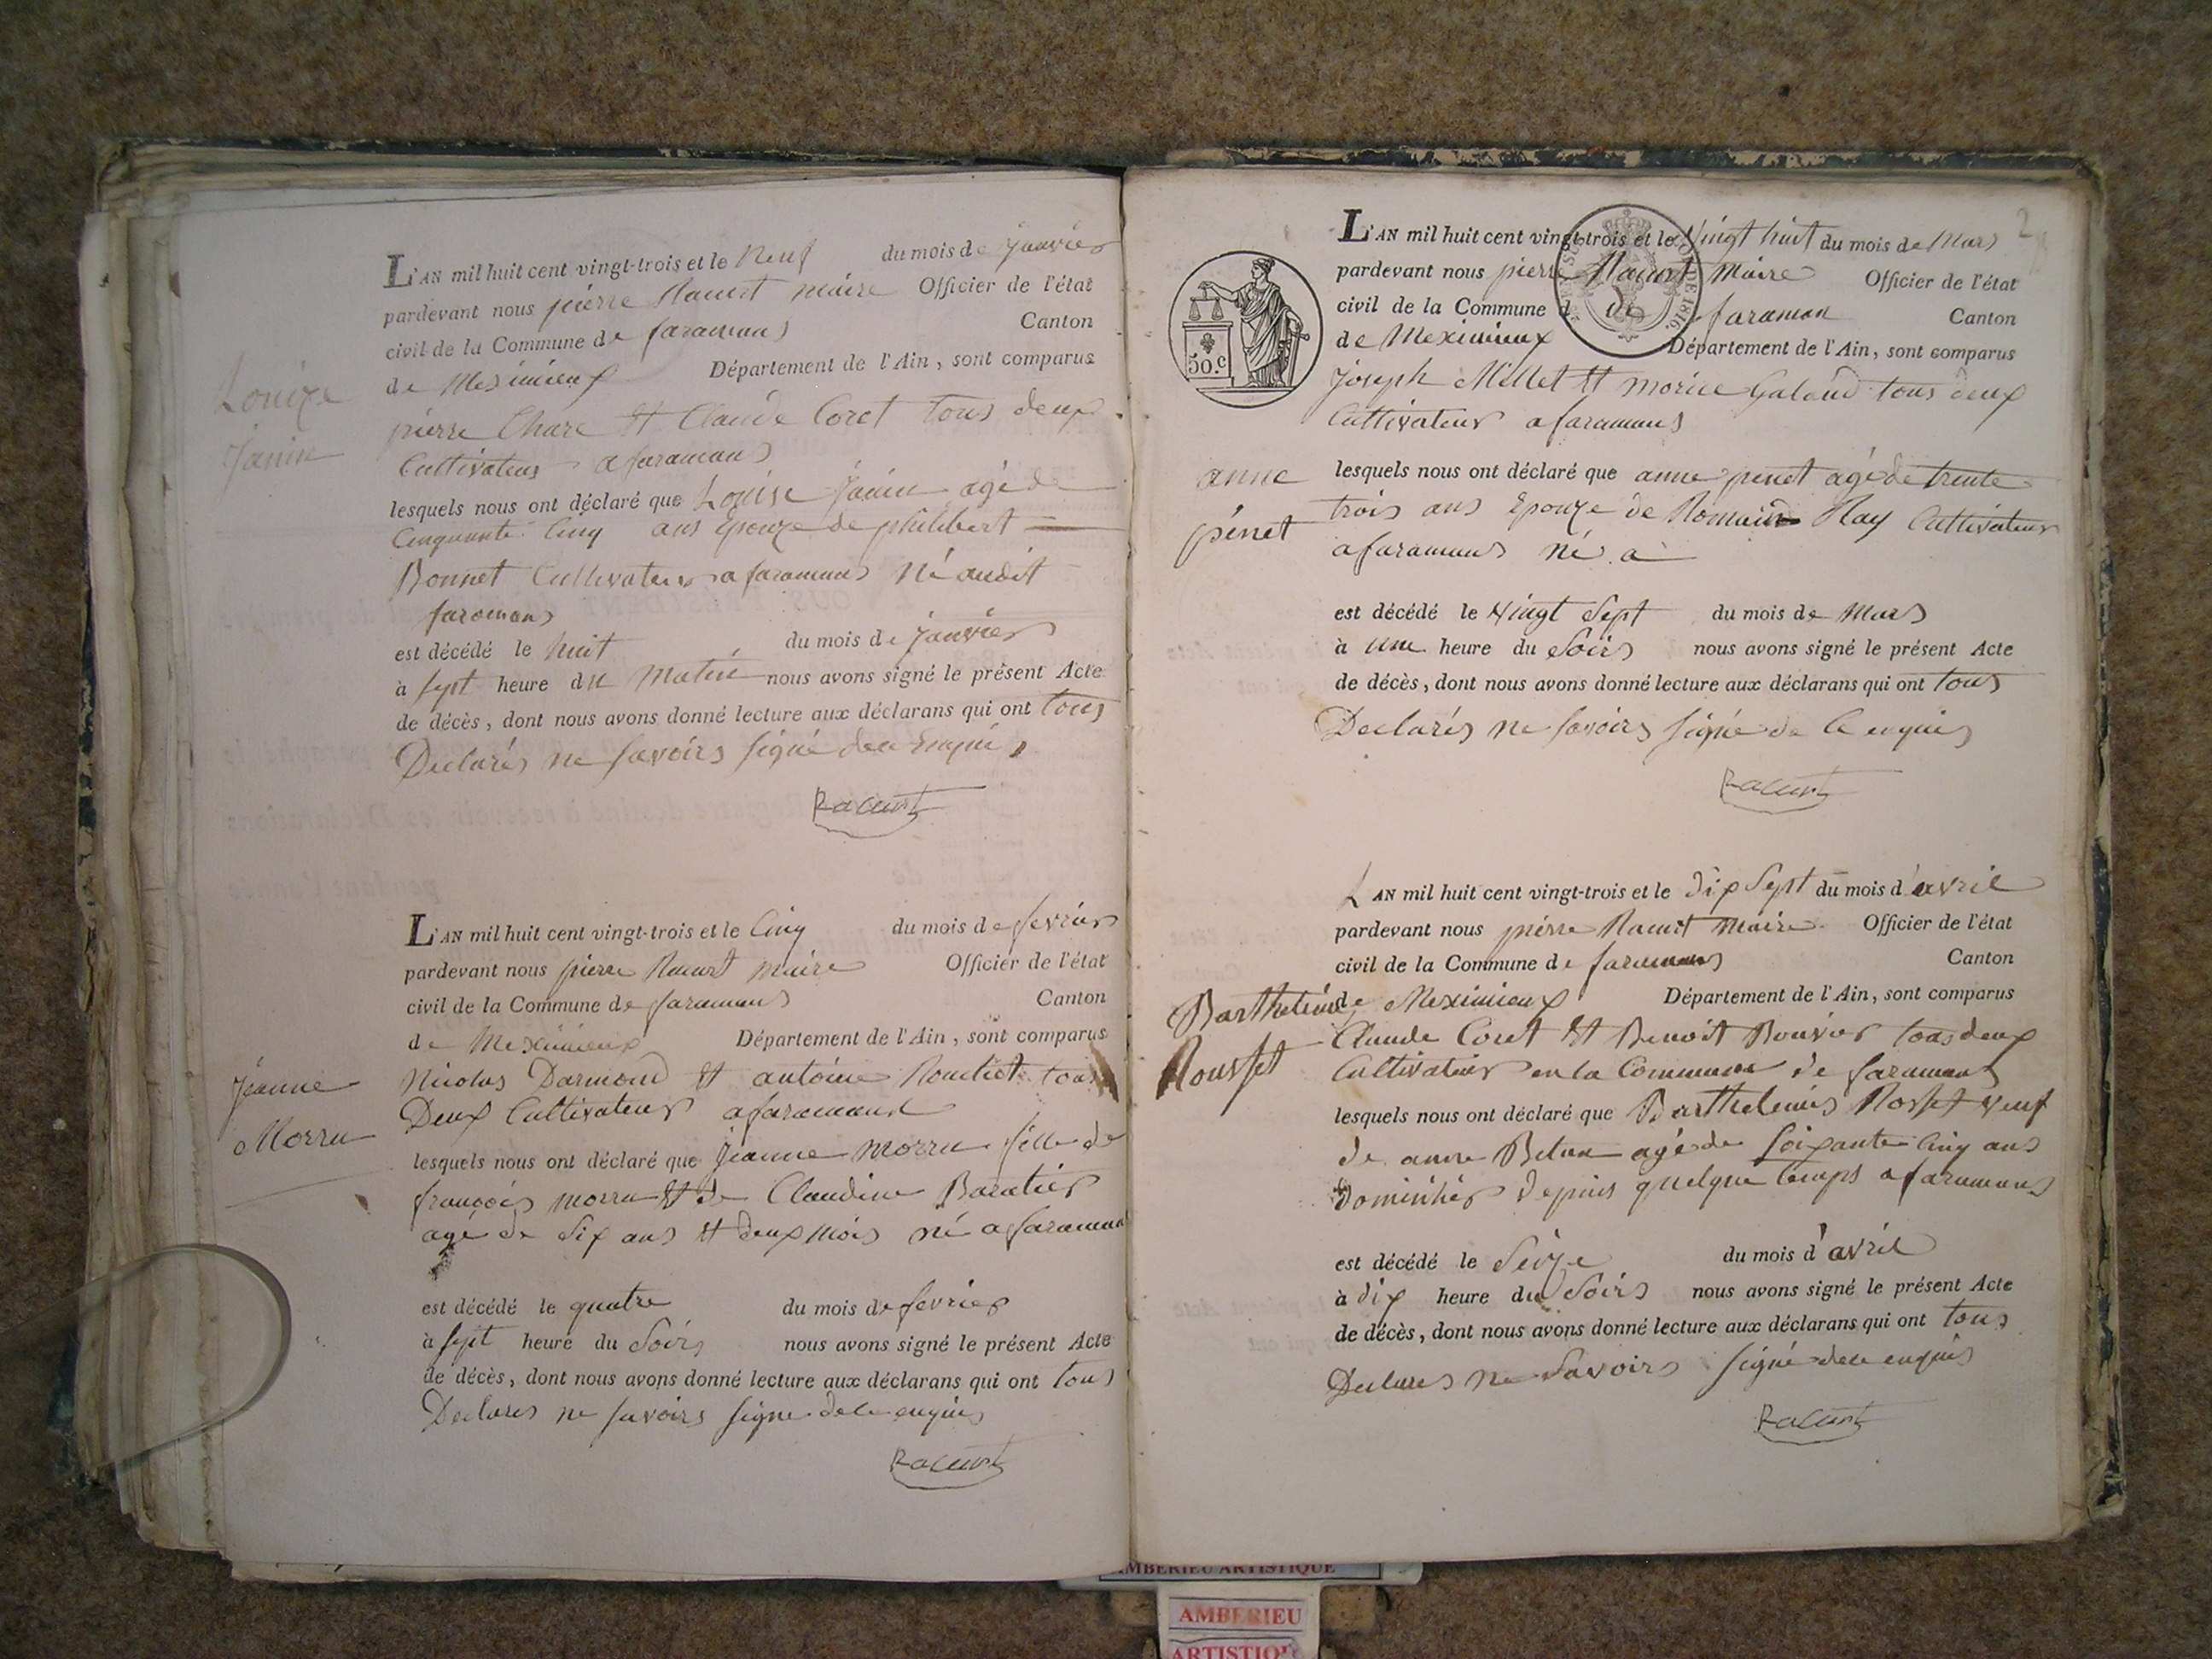 Louize
Janin
L'AN mil huit cent vingt-trois et le Neuf du mois de Janvier
pardevant nous pierre Racurt maire Officier de l'état
civil de la Commune de faramans Canton
de Meximieux Département de l'Ain, sont comparus
pierre Chare et Claude Coret tous deux
Cultivateurs a faramans
lesquels nous ont déclaré que Louise Janin agé de
Cinquante Cinq ans Epouze de philibert
Bonnet Cultivateur a faramans Né audit
faramans
est décédé le huit du mois de Janvier
à sept heure du Matin nous avons signé le présent Acte
de décès, dont nous avons donné lecture aux déclarans qui ont tous
Declarés ne savoirs signé de ce Enquis
Racurt
Jeanne
Morru
L'AN mil huit cent vingt-trois et le Cinq du mois de fevrier
pardevant nous pierre Racurt maire Officier de l'état
civil de la Commune de faramans Canton
de Meximieux Département de l'Ain, sont comparus
Nicolas Darmond et antoine tous
Deux Cultivateur a faramans
lesquels nous ont déclaré que Jeanne Morru fille de
françois morru et de Claudine Baratier
agé de Six ans et deux Mois né a faramans
est décédé le quatre du mois de fevrier
à sept heure du Soirs nous avons signé le présent Acte
de décès, dont nous avons donné lecture aux déclarans qui ont tous
Declares ne savoirs signe de ce enquis
Racurt
2
50.c
1816.
L'AN mil huit cent vingt-trois et le Vingt huit du mois de Mars
pardevant nous pierre Racurt Maire Officier de l'état
civil de la Commune d de faraman Canton
de Meximieux Département de l'Ain, sont comparus
Joseph Millet et morice Galand tous deux
Cultivateur a faramans
anne
pénet
lesquels nous ont déclaré que anne penet agé de trente
trois ans Epouze de Romain Ray Cultivateur
a faramans né a
est décédé le Vingt Sept du mois de Mars
à une heure du Soirs nous avons signé le présent Acte
de décès, dont nous avons donné lecture aux déclarans qui ont tous
Declarés ne savoirs signé de ce enquis
Racurt
L AN mil huit cent vingt-trois et le dix Sept du mois d'avril
pardevant nous pierre Racurt Maire Officier de l'état
civil de la Commune de faramans Canton
de Meximieux Département de l'Ain, sont comparus
Barthelémi
Rousset
Claude Coret et Benoit Bouvier tous deux
Cultivateur en la Commune de faramans
lesquels nous ont déclaré que Barthelemis Rosset veuf
de anne agé de Soixante Cinq ans
Dominhér depuis quelque temps a faramans
est décédé le Seize du mois d'avril
à dix heure du Soirs nous avons signé le présent Acte
de décès, dont nous avons donné lecture aux déclarans qui ont tous
Declares ne Savoirs signé de ce enquis
Racurt
AMBERIEU ARTISTIQUE
AMBERIEU